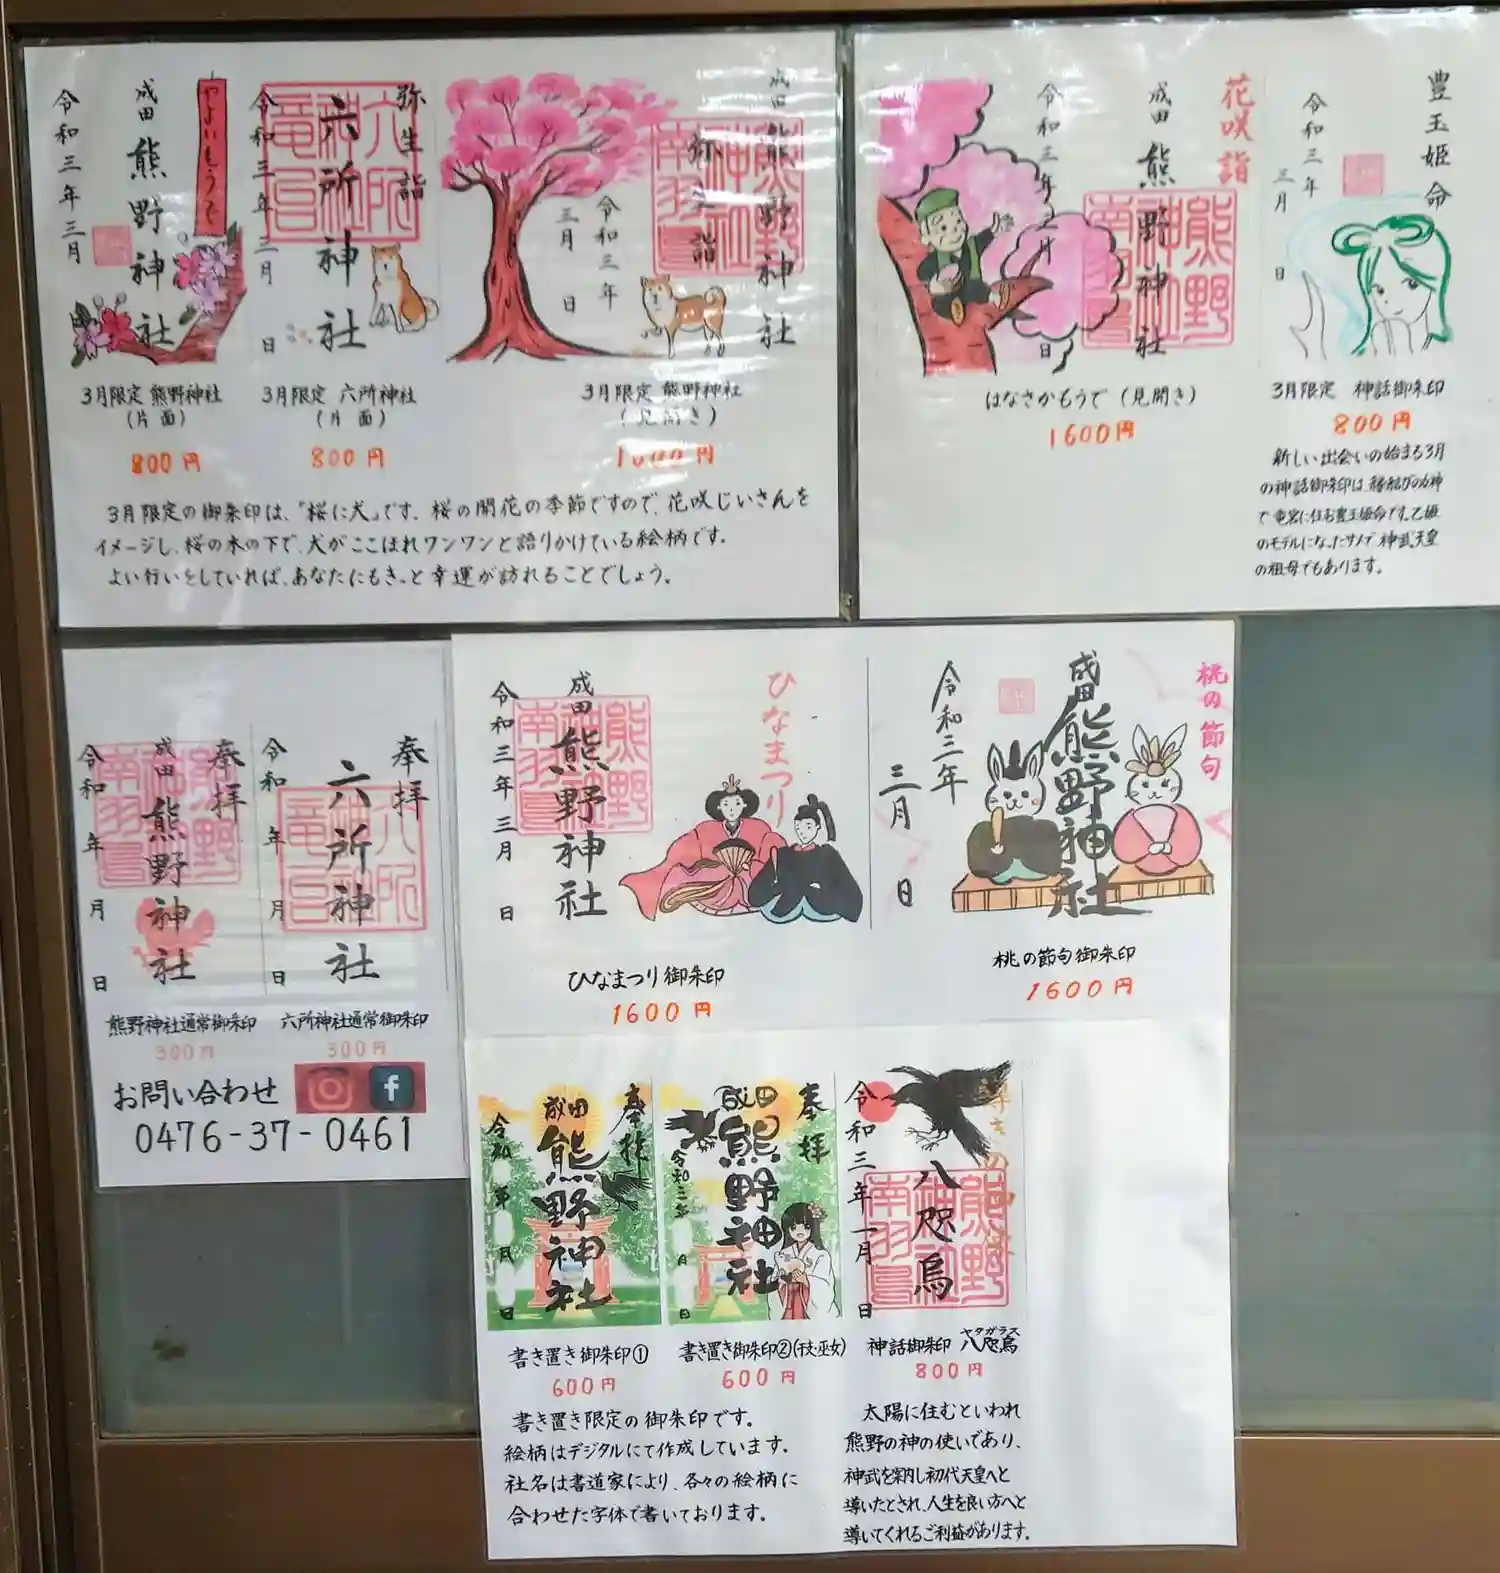 やよいもうで
成田
熊野神社
令和三年三月
弥生詣
六所神社
令和三年三月
日
成田
熊野神社
弥生詣
令和三年
三月
日
3月限定 熊野神社
(片面)
800円
3月限定 六所神社
(片面)
800円
3月限定 熊野神社
(見開き)
1600円
3月限定の御朱印は、「桜に犬」です。桜の開花の季節ですので、花咲じいさんを
イメージし、桜の木の下で、犬がここほれワンワンと語りかけている絵柄です。
よい行いをしていれば、あなたにもきっと幸運が訪れることでしょう。
花咲詣
成田
熊野神社
令和三年三月
日
はなさかもうで (見開き)
1600円
豊玉姫命
令和三年
三月
日
3月限定 神話御朱印
800円
新しい出会いの始まる3月
の神話御朱印は、縁結びの力神
で竜宮に住む豊玉姫命です。乙姫
のモデルになったサメで、神武天皇
の祖母でもあります。
奉拝
成田
熊野神社
令和 年 月 日
熊野神社通常御朱印
300円
奉拝
六所神社
令和 年 月 日
六所神社通常御朱印
300円
お問い合わせ
0476-37-0461
ひなまつり
成田
熊野神社
令和三年三月 日
ひなまつり御朱印
1600円
桃の節句
成田
熊野神社
令和三年
三月 日
桃の節句御朱印
1600円
奉拝
成田
熊野神社
令和 年 月 日
書き置き御朱印①
600円
奉拝
成田
熊野神社
令和三年 月 日
書き置き御朱印②(干支・巫女)
600円
八咫烏
令和三年一月 日
神話御朱印 八咫烏
ヤタガラス
800円
書き置き限定の御朱印です。
絵柄はデジタルにて作成しています。
社名は書道家により、各々の絵柄に
合わせた字体で書いております。
太陽に住むといわれ
熊野の神の使いであり、
神武を案内し初代天皇へと
導いたとされ、人生を良い方へと
導いてくれるご利益があります。